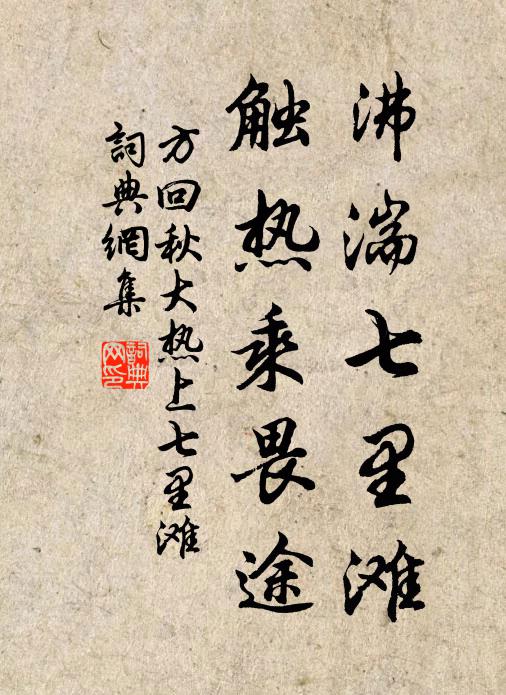 沸湍七里滩
触热乘畏途
方回秋大热上七里滩
词典網集
詞典网印